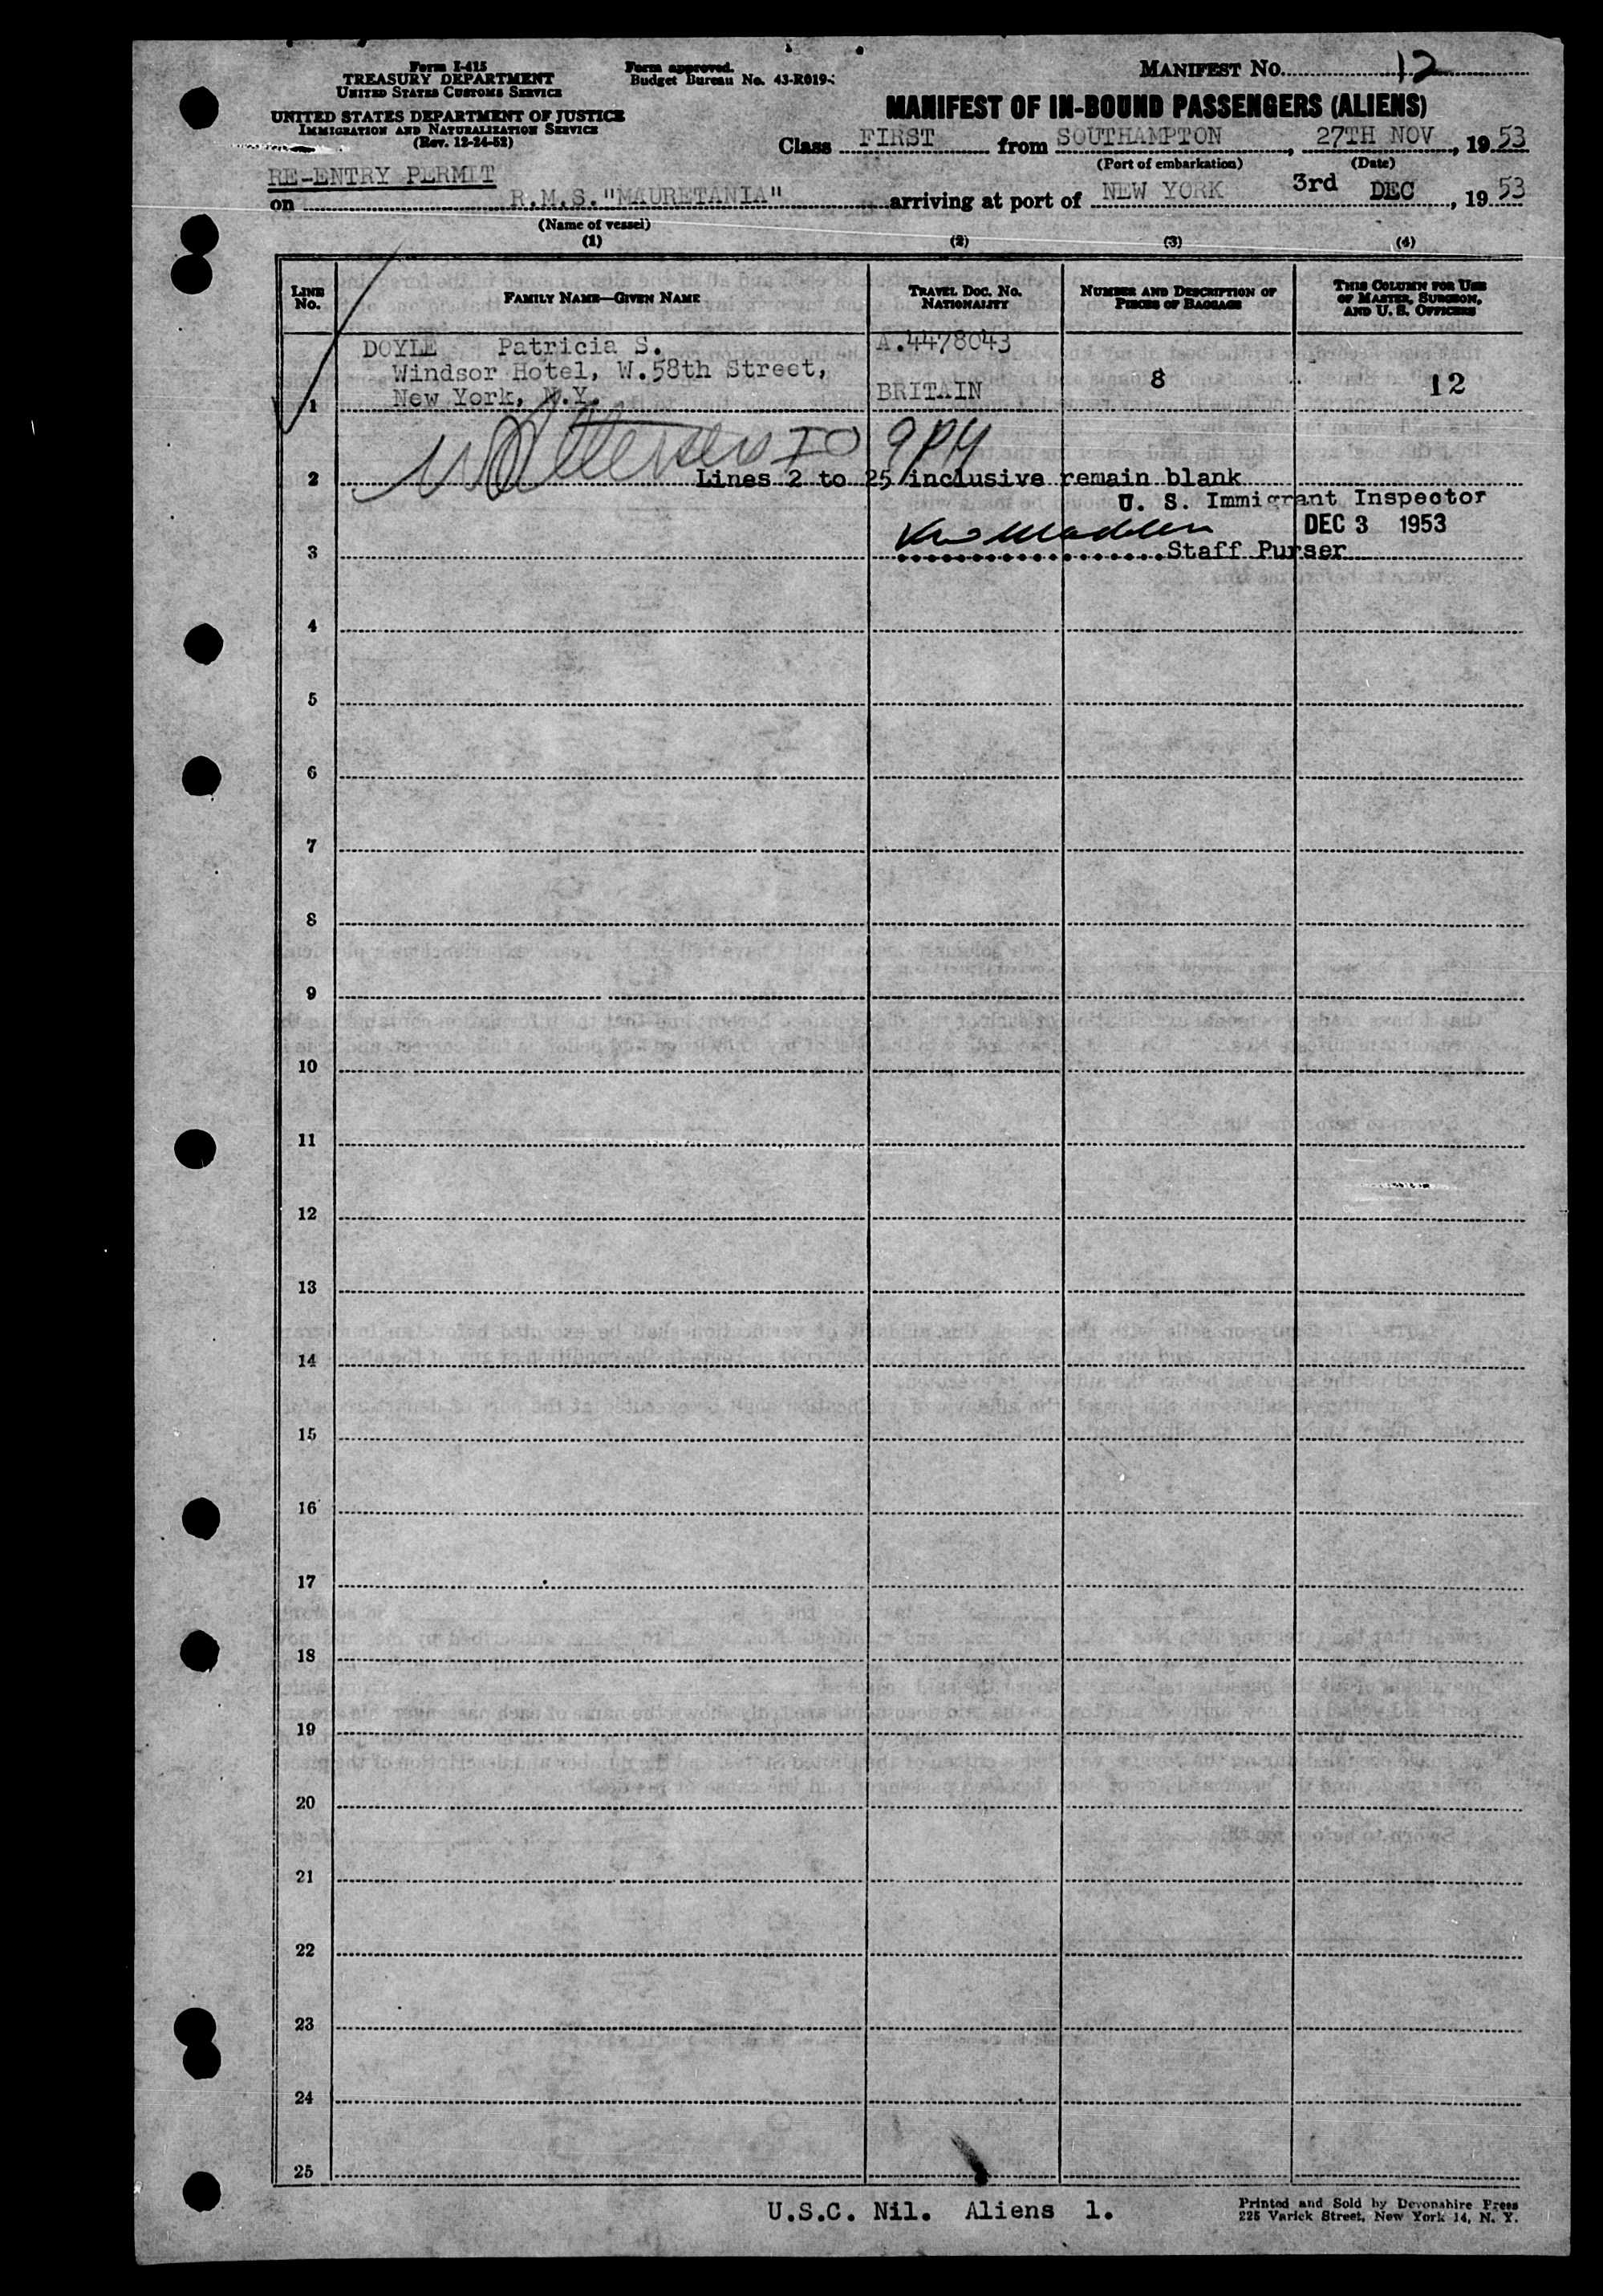 Form I-415
TREASURY DEPARTMENT
UNITED STATES CUSTOMS SERVICE
UNITED STATES DEPARTMENT OF JUSTICE
IMMIGRATION AND NATURALIZATION SERVICE
(Rev. 12-24-52)
Form approved.
Budget Bureau No. 43-R019-
MANIFEST NO. 12
MANIFEST OF IN-BOUND PASSENGERS (ALIENS)
Class FIRST from SOUTHAMPTON, 27TH NOV, 1953
(Port of embarkation) (Date)
RE-ENTRY PERMIT
on R.M.S."MAURETANIA" arriving at port of NEW YORK 3rd DEC, 1953
(Name of vessel)
(1) (2) (3) (4)
LINE NO. FAMILY NAME—GIVEN NAME TRAVEL DOC. NO. NATIONALITY NUMBER AND DESCRIPTION OF PIECES OF BAGGAGE THIS COLUMN FOR USE OF MASTER, SURGEON, AND U. S. OFFICERS
DOYLE Patricia S. A.4478043
Windsor Hotel, W.58th Street,
New York, N.Y. BRITAIN 8 12
1
2 Lines 2 to 25 inclusive remain blank
U. S. Immigrant Inspector
DEC 3 1953
3 Staff Purser
4
5
6
7
8
9
10
11
12
13
14
15
16
17
18
19
20
21
22
23
24
25
U.S.C. Nil. Aliens 1.
Printed and Sold by Devonshire Press
225 Varick Street, New York 14, N. Y.